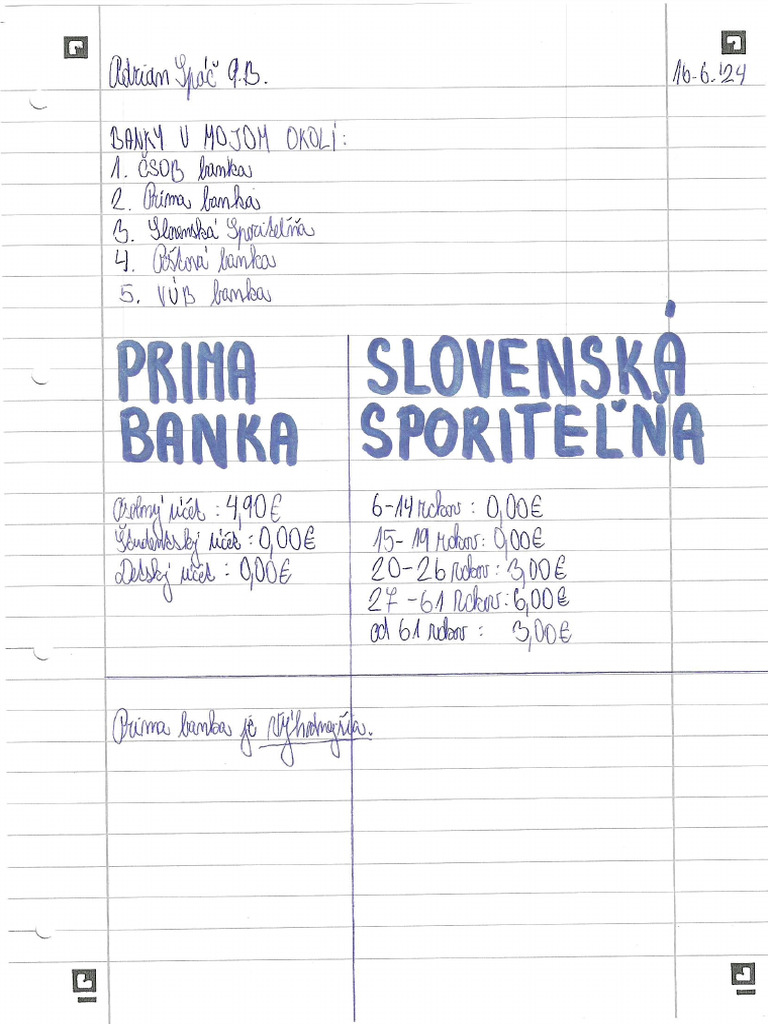 Adrian Spáč 9.B.
16.6.'24
BANKY V MOJOM OKOLÍ:
1. ČSOB banka
2. Prima banka
3. Slovenská Sporiteľňa
4. Poštová banka
5. VÚB banka
PRIMA
BANKA
SLOVENSKÁ
SPORITEĽŇA
Osobný účet : 4,90€
Študentský účet : 0,00€
Detský účet : 0,00€
6-14 rokov : 0,00€
15-19 rokov: 0,00€
20-26 rokov: 3,00€
27-61 rokov: 6,00€
od 61 rokov : 3,00€
Prima banka je výhodnejšia.